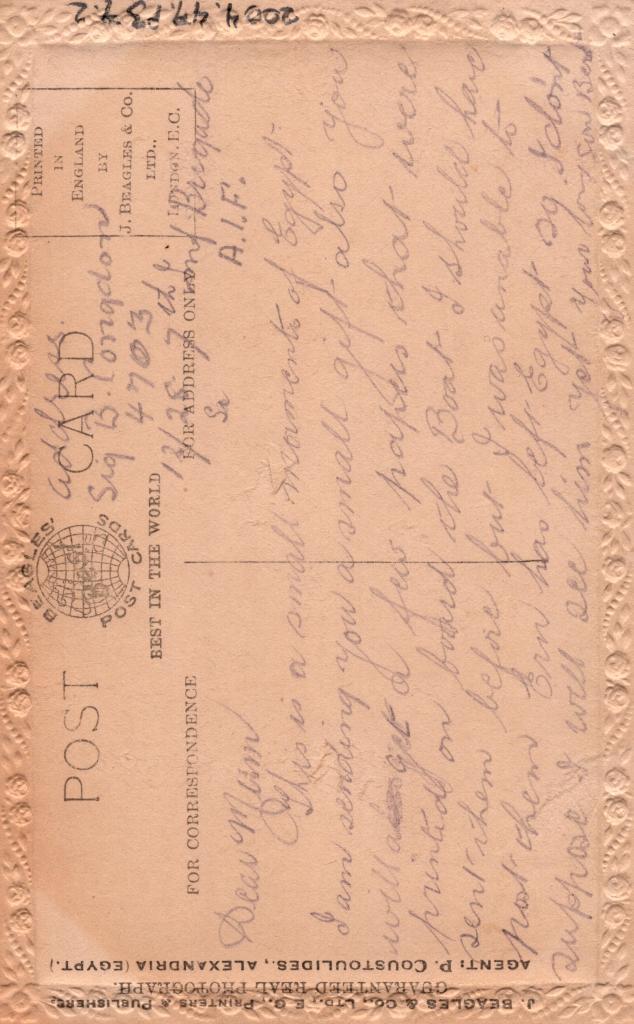 2004.47.P37.2
POST CARD
BEAGLES' POST CARDS
BEST IN THE WORLD
PRINTED
IN
ENGLAND
BY
J. BEAGLES & CO.
LTD.,
LONDON. E.C.
FOR CORRESPONDENCE
FOR ADDRESS ONLY
Address.
Sig B. Longdon
4703
13/25 7th Inf Brigade
A.I.F.
Dear Mum
This is a small momento of Egypt.
I am sending you a small gift also you
will get a few papers that were
printed on board the Boat I should have
sent them before but I was unable to
post them Ern has left Egypt so I don't
suppose I will see him yet Your loving Son Bert
AGENT: P. COUSTOULIDES, ALEXANDRIA (EGYPT.)
GUARANTEED REAL PHOTOGRAPH.
J. BEAGLES & CO., LTD., E.C., PRINTERS & PUBLISHERS